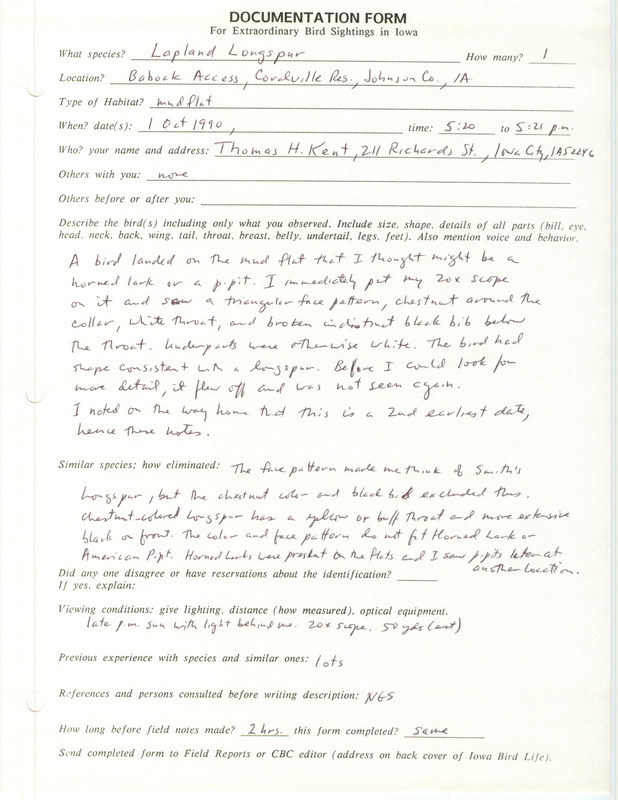 DOCUMENTATION FORM
For Extraordinary Bird Sightings in Iowa
What species? Lapland Longspur How many? 1
Location? Babock Access, Coralville Res., Johnson Co., IA
Type of Habitat? mudflat
When? date(s): 1 Oct 1990, time: 5:20 to 5:21 p.m.
Who? your name and address: Thomas H. Kent, 211 Richards St., Iowa City, IA 52246
Others with you: none
Others before or after you:
Describe the bird(s) including only what you observed. Include size, shape, details of all parts (bill, eye,
head, neck, back, wing, tail, throat, breast, belly, undertail, legs, feet). Also mention voice and behavior.
A bird landed on the mud flat that I thought might be a
horned lark or a pipit. I immediately put my 20x scope
on it and saw a triangular face pattern, chestnut around the
collar, white throat, and broken indistinct black bib below
the throat. Underparts were otherwise white. The bird had
shape consistent with a longspur. Before I could look for
more detail, it flew off and was not seen again.
I noted on the way home that this is a 2nd earliest date,
hence these notes.
Similar species; how eliminated: The face pattern made me think of Smith's
Longspur, but the chestnut color and black bib excluded this.
Chestnut-colored Longspur has a yellow or buff throat and more extensive
black on front. The color and face pattern do not fit Horned Lark or
American Pipit. Horned Larks were present on the flats and I saw pipits later at
another location.
Did any one disagree or have reservations about the identification?
If yes, explain:
Viewing conditions: give lighting, distance (how measured), optical equipment.
late p.m. sun with light behind me. 20x scope. 50 yds (est)
Previous experience with species and similar ones: lots
References and persons consulted before writing description: NGS
How long before field notes made? 2 hrs. this form completed? same
Send completed form to Field Reports or CBC editor (address on back cover of Iowa Bird Life).